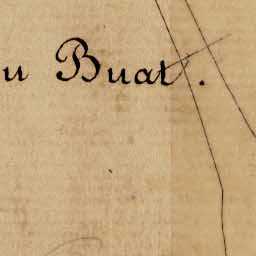 u Buat.